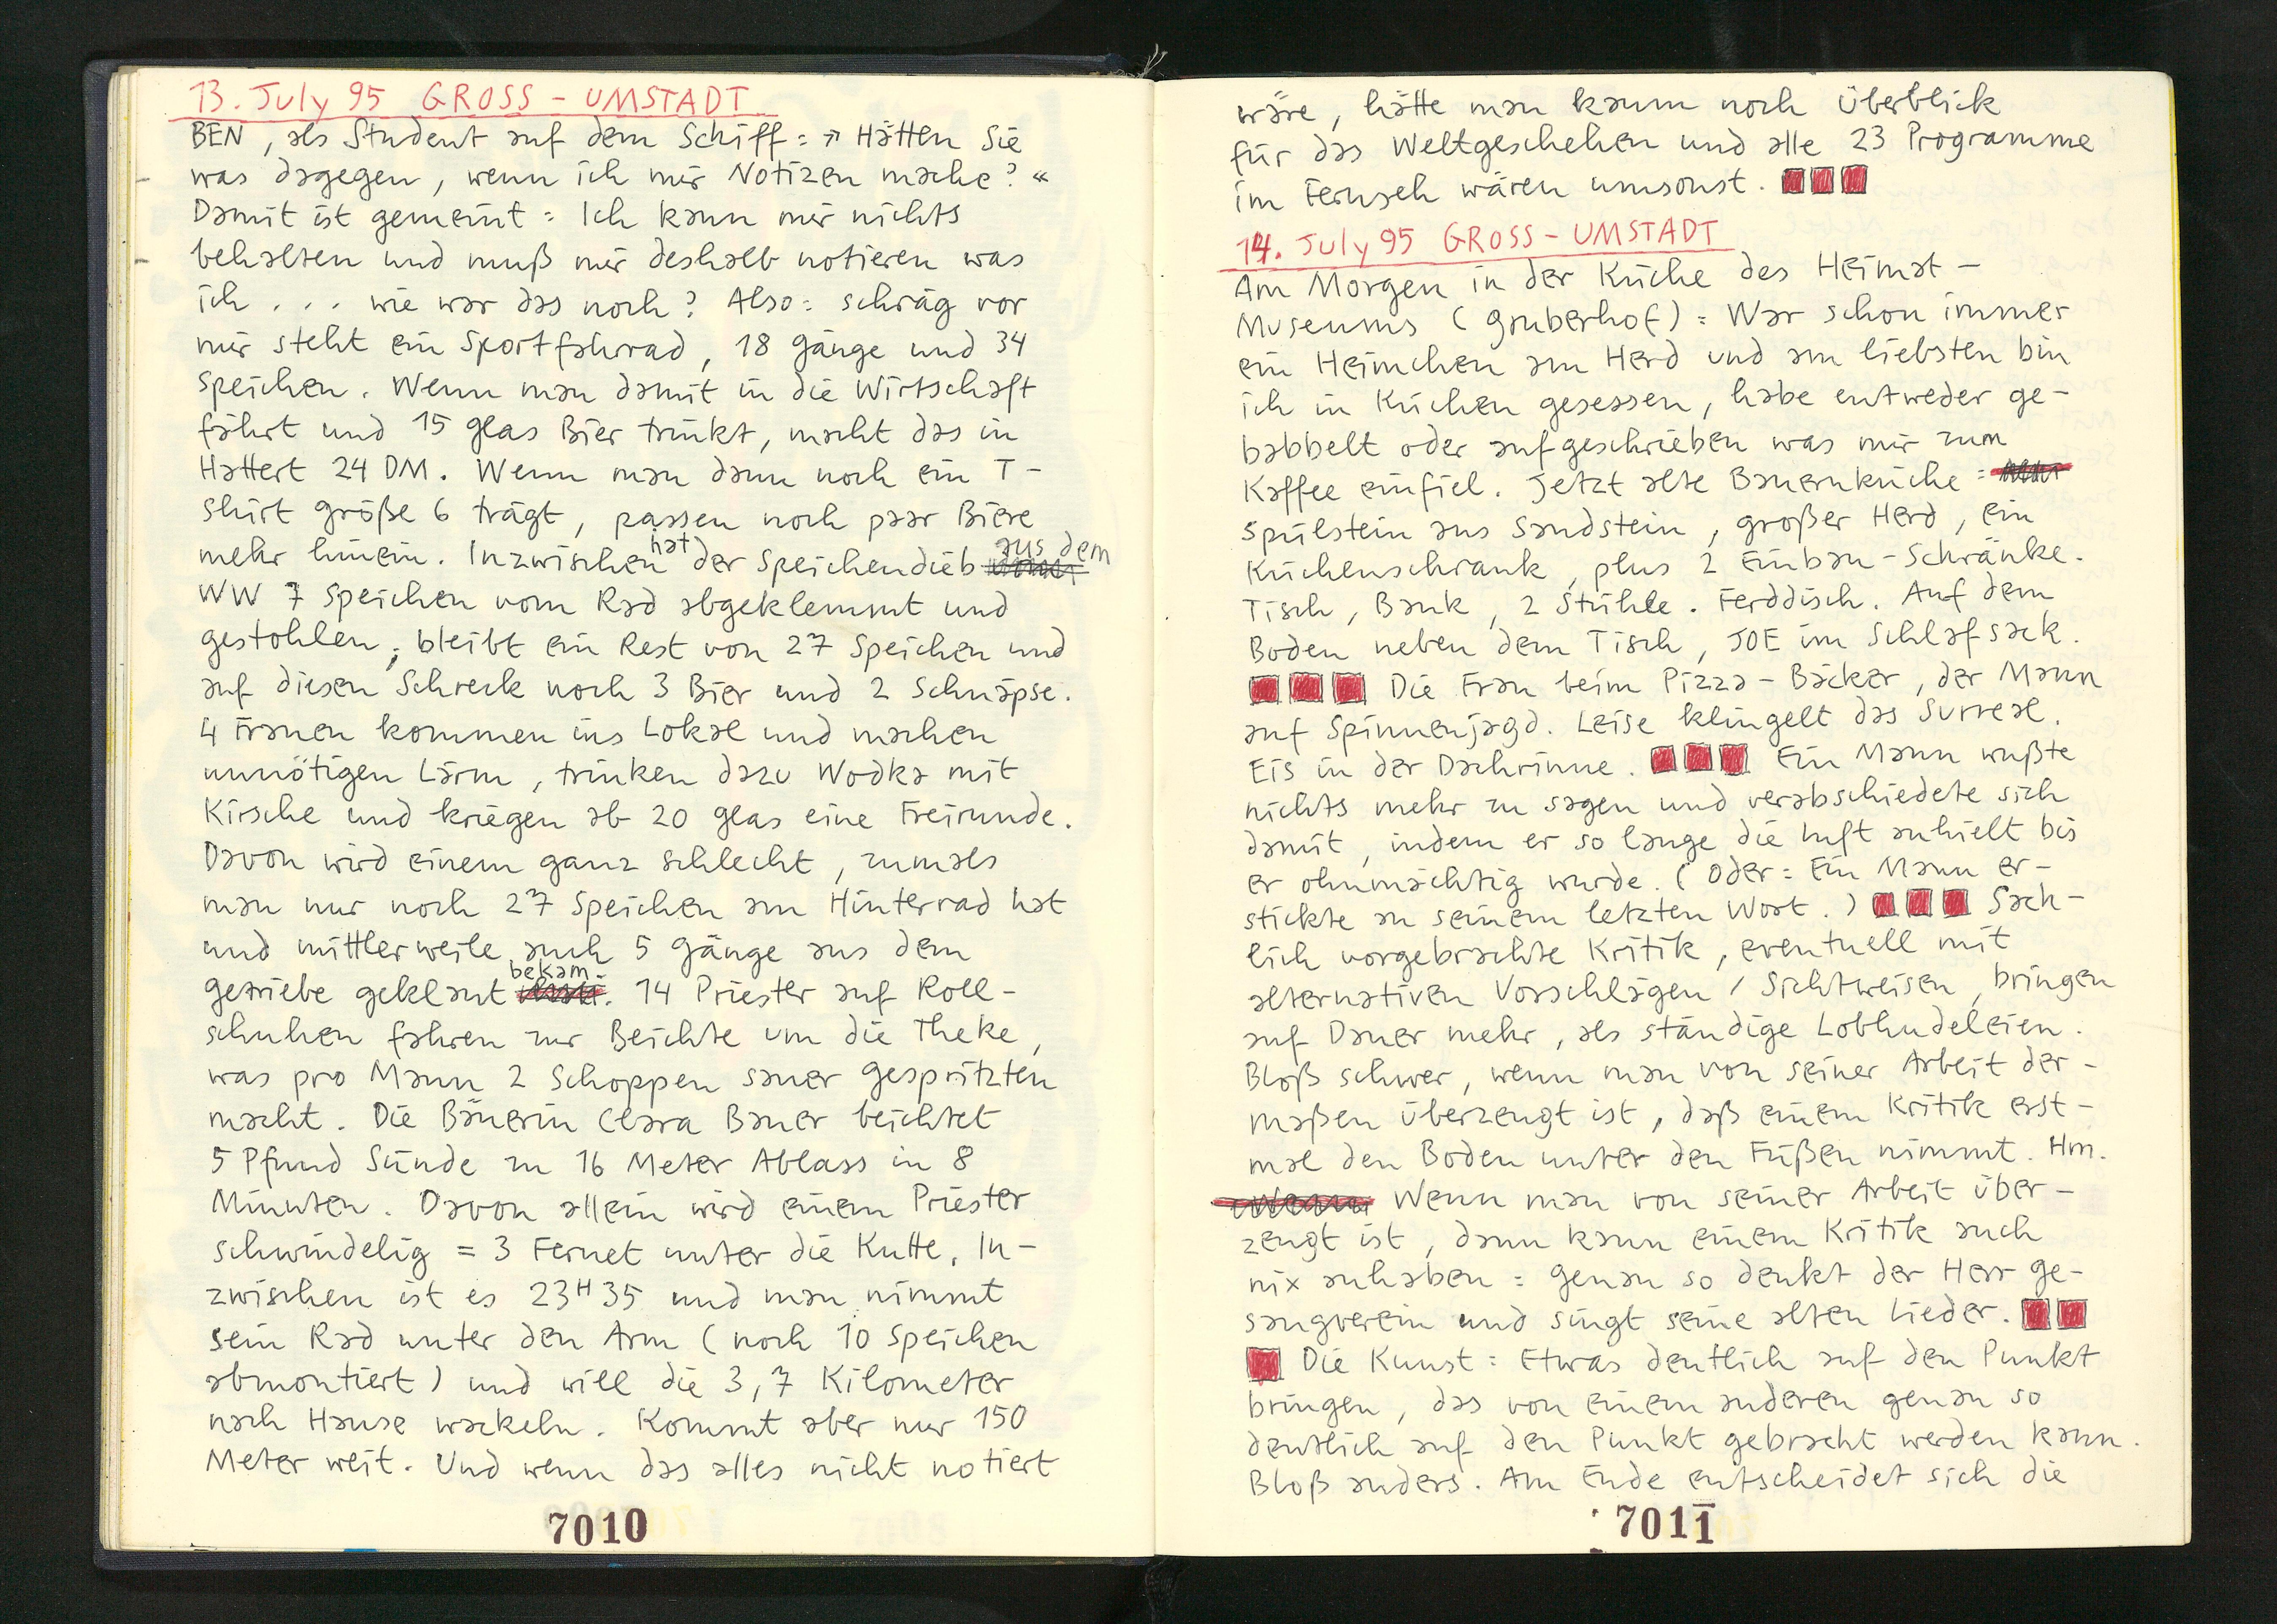 13. July 95 GROSS-UMSTADT
BEN, als Student auf dem Schiff: »Hätten Sie
was dagegen, wenn ich mir Notizen mache?«
Damit ist gemeint: Ich kann mir nichts
behalten und muß mir deshalb notieren was
ich ... wie war das noch? Also: schräg vor
mir steht ein Sportfahrrad, 18 Gänge und 34
Speichen. Wenn man damit in die Wirtschaft
fährt und 15 Glas Bier trinkt, macht das in
Hattert 24 DM. Wenn man dann noch ein T-
Shirt größe 6 trägt, passen noch paar Biere
mehr hinein. Inzwischen hat der Speichendieb aus dem
WW 7 Speichen vom Rad abgeklemmt und
gestohlen; bleibt ein Rest von 27 Speichen und
auf diesen Schreck noch 3 Bier und 2 Schnäpse.
4 Frauen kommen ins Lokal und machen
unnötigen Lärm, trinken dazu Wodka mit
Kirsche und kriegen ab 20 Glas eine Freirunde.
Davon wird einem ganz schlecht, zumals
man nur noch 27 Speichen am Hinterrad hat
und mittlerweile auch 5 Gänge aus dem
Getriebe geklaut bekam. 14 Priester auf Roll-
schuhen fahren zur Beichte um die Theke,
was pro Mann 2 Schoppen sauer Gespritzten
macht. Die Bäuerin Clara Bauer beichtet
5 Pfund Sünde zu 16 Meter Ablass in 8
Minuten. Davon allein wird einem Priester
schwindelig = 3 Fernet unter die Kutte. In-
zwischen ist es 23H35 und man nimmt
sein Rad unter den Arm (noch 10 Speichen
abmontiert) und will die 3,7 Kilometer
nach Hause wackeln. Kommt aber nur 150
Meter weit. Und wenn das alles nicht notiert
7010
wäre, hätte man kaum noch Überblick
für das Weltgeschehen und alle 23 Programme
im Fernseh wären umsonst.
14. July 95 GROSS-UMSTADT
Am Morgen in der Küche des Heimat-
Museums (Gruberhof): War schon immer
ein Heimchen am Herd und am liebsten bin
ich in Küchen gesessen, habe entweder ge-
babbelt oder aufgeschrieben was mir zum
Kaffee einfiel. Jetzt alte Bauernküche:
Spülstein aus Sandstein, großer Herd, ein
Küchenschrank, plus 2 Einbau-Schränke.
Tisch, Bank, 2 Stühle. Ferddisch. Auf dem
Boden neben dem Tisch, JOE im Schlafsack.
Die Frau beim Pizza-Bäcker, der Mann
auf Spinnenjagd. Leise klingelt das Surreal.
Eis in der Dachrinne. Ein Mann wußte
nichts mehr zu sagen und verabschiedete sich
damit, indem er so lange die Luft anhielt bis
er ohnmächtig wurde. (Oder: Ein Mann er-
stickte an seinem letzten Wort.) Sach-
lich vorgebrachte Kritik, eventuell mit
alternativen Vorschlägen / Sichtweisen, bringen
auf Dauer mehr, als ständige Lobhudeleien.
Bloß schwer, wenn man von seiner Arbeit der-
maßen überzeugt ist, daß einem Kritik erst-
mal den Boden unter den Füßen nimmt. Hm.
Wenn man von seiner Arbeit über-
zeugt ist, dann kann einem Kritik auch
nix anhaben: Genau so denkt der Herr Ge-
sangverein und singt seine alten Lieder.
Die Kunst: Etwas deutlich auf den Punkt
bringen, das von einem anderen genau so
deutlich auf den Punkt gebracht werden kann.
Bloß anders. Am Ende entscheidet sich die
7011